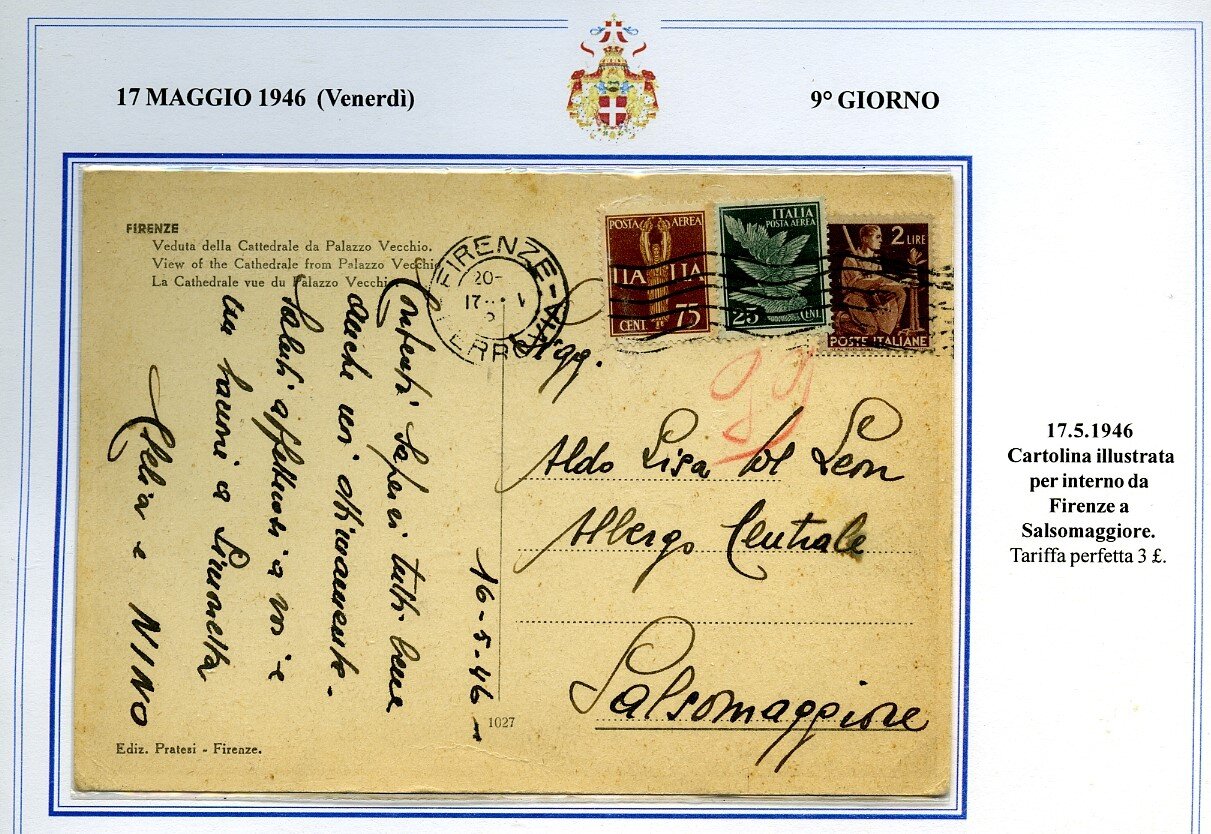 17 MAGGIO 1946 (Venerdì)
9° GIORNO
FIRENZE
Veduta della Cattedrale da Palazzo Vecchio.
View of the Cathedral from Palazzo Vecchio
La Cathedrale vue du Palazzo Vecchi
FIRENZE
20-
17
FERROVIA
POSTA AEREA
ITALIA
CENT. 75
ITALIA
POSTA AEREA
25 CENT.
2 LIRE
POSTE ITALIANE
16-5-46
Contenti saperci tutti bene
anche noi ottimamente.
Saluti affettuosi a voi e
un bacione a Simonetta
Clelia e NINO
Sigg.
Aldo Lisa Del Leon
Albergo Centrale
Salsomaggiore
1027
Ediz. Pratesi - Firenze.
17.5.1946
Cartolina illustrata
per interno da
Firenze a
Salsomaggiore.
Tariffa perfetta 3 £.